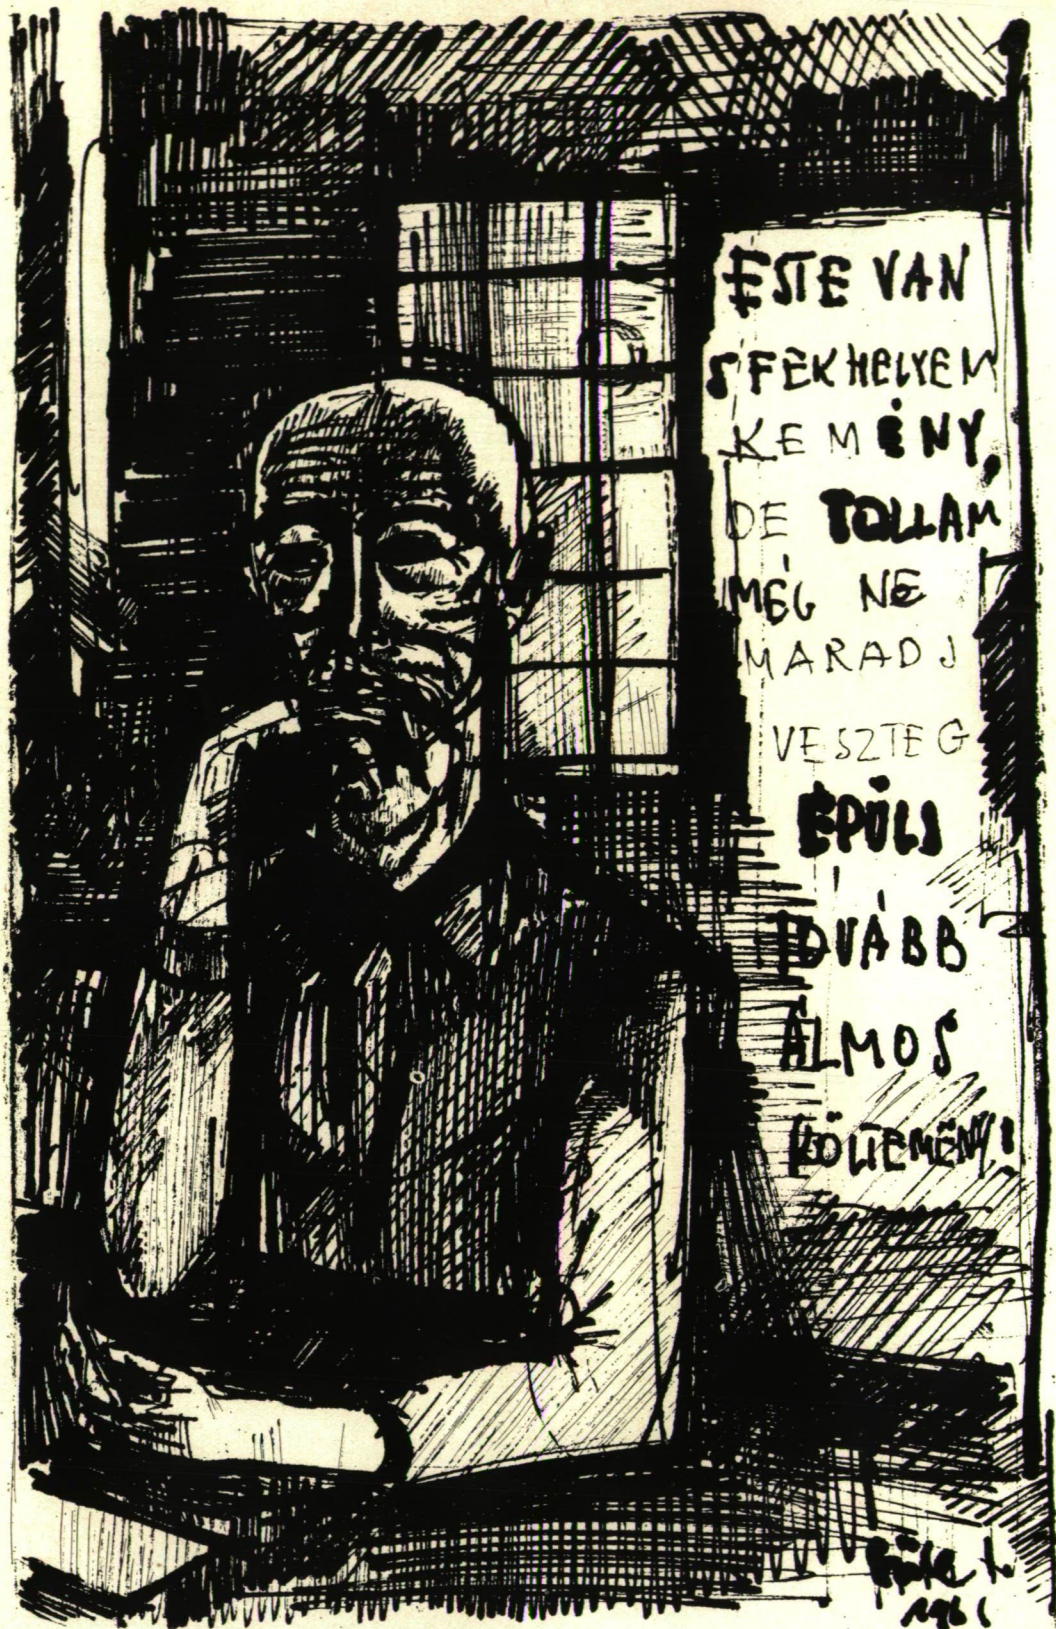 ESTE VAN
S FEKHELYEM
KEMÉNY,
DE TOLLAM
MÉG NE
MARADJ
VESZTEG
ÉPÜLJ
TOVÁBB
ÁLMOS
KÖLTEMÉNY!